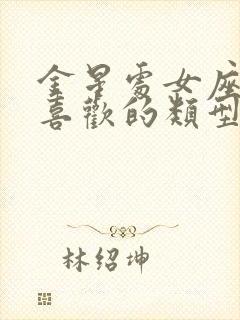 金星處女座
喜歡的類型
林紹坤